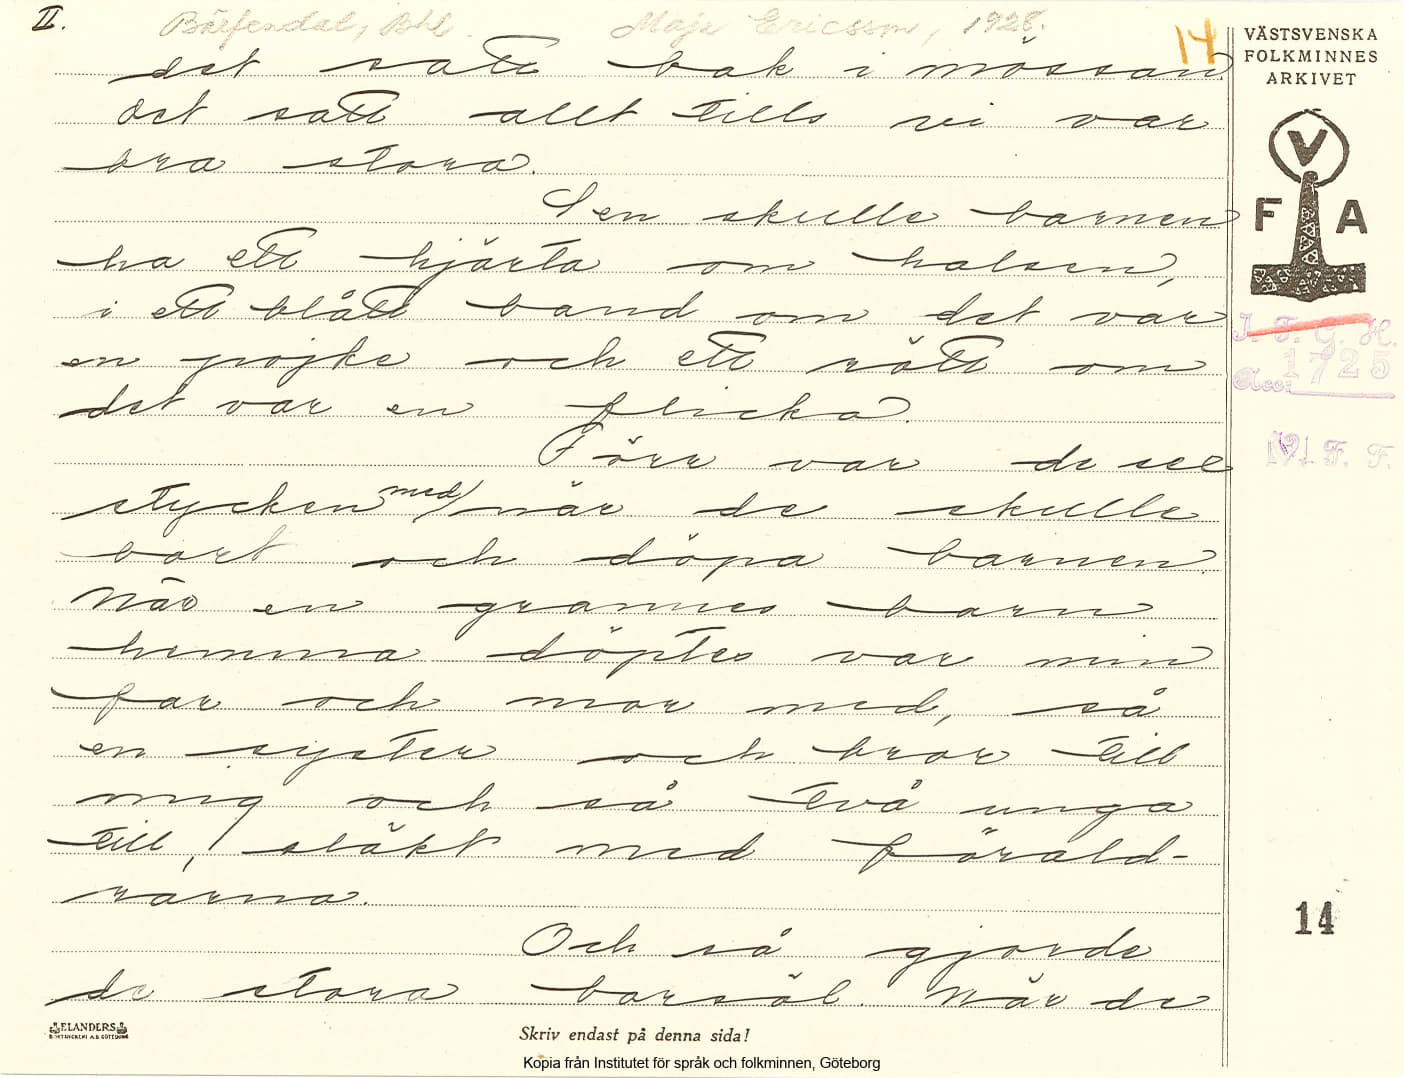 II.
Bärfendal, Bhl. Maja Ericsson, 1928.
14
det satt bak i mössan
det satt allt tills vi var
bra stora.
Sen skulle barnen
ha ett hjärta om halsen,
i ett blått band om det var
en pojke och ett rött om
det var en flicka.
Förr var de sex
stycken med när de skulle
bort och döpa barnen.
När en grannes barn
hemma döptes var min
far och mor med, så
en syster och bror till
mig och så två unga
till, släkt med föräld-
rarna.
Och så gjorde
de stora barsöl. När de
VÄSTSVENSKA
FOLKMINNES
ARKIVET
V
F A
I. F. G. H.
Acc: 1725
V F. F.
14
ELANDERS
BOKTRYCKERI A.B. GÖTEBORG
Skriv endast på denna sida!
Kopia från Institutet för språk och folkminnen, Göteborg